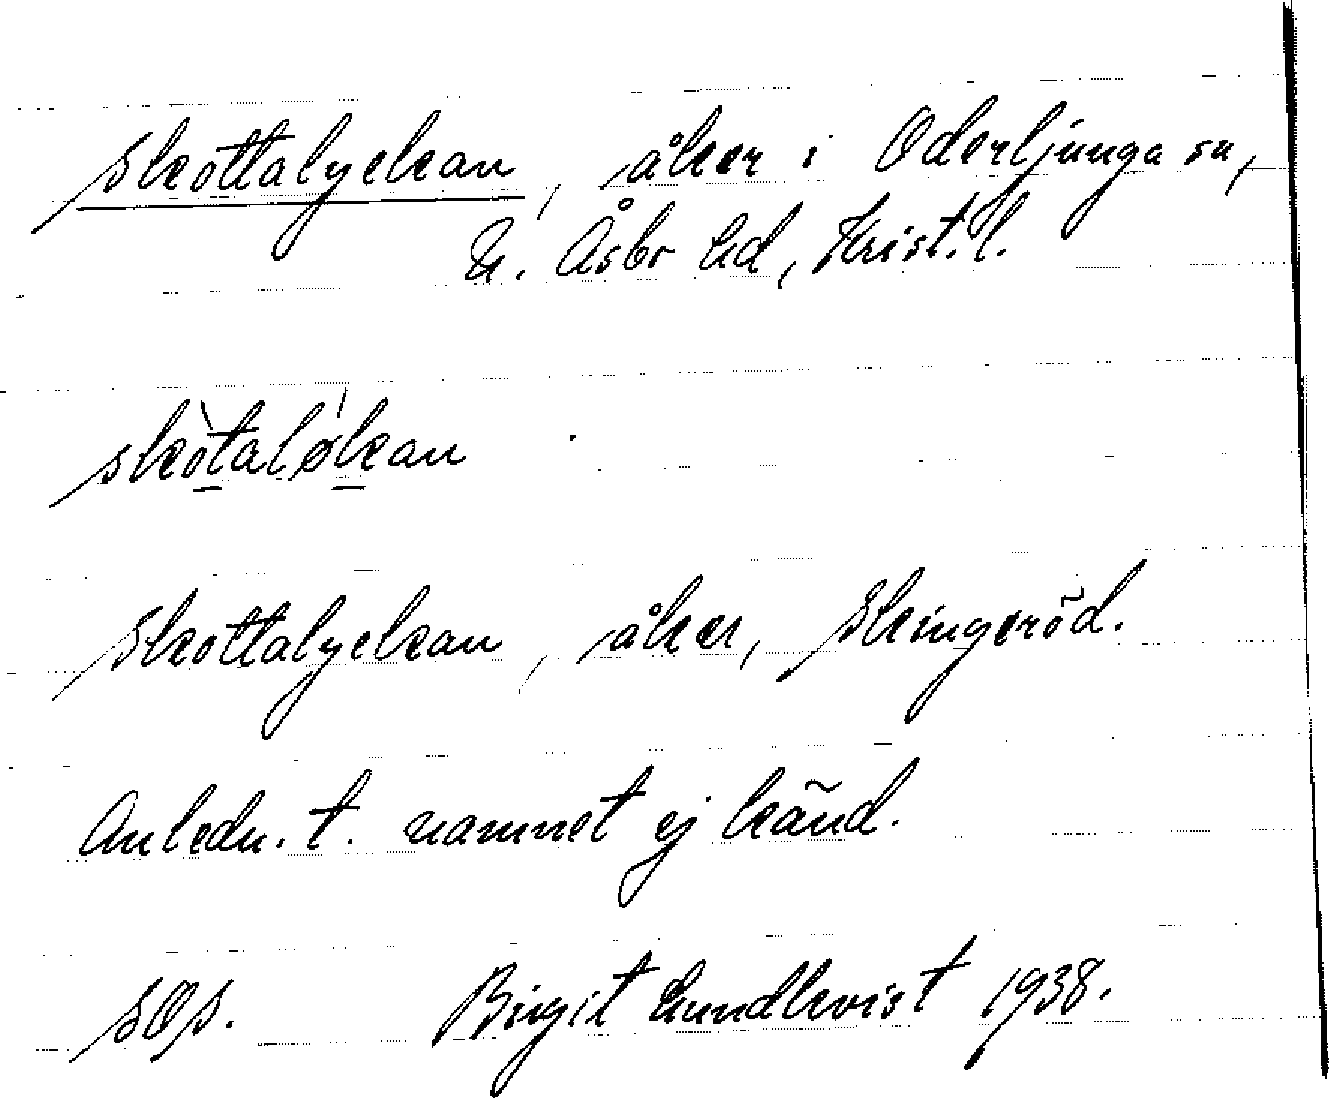 Skottalyckan, åker i Oderljunga sn,
N. Åsbo hd, Krist. l.
skòtaløkan
Skottalyckan, åker, Skingeröd.
Anledn. t. namnet ej känd.
Birgit Lundkvist 1938.